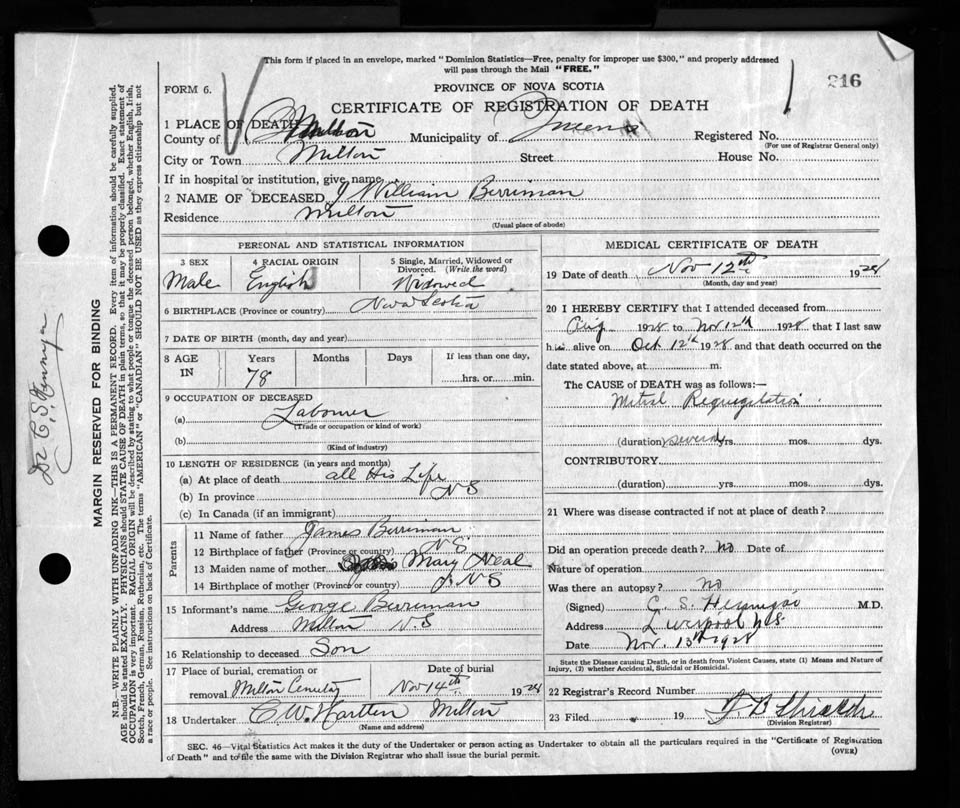 This form if placed in an envelope, marked "Dominion Statistics—Free, penalty for improper use $300," and properly addressed
will pass through the Mail "FREE."
216
FORM 6.
PROVINCE OF NOVA SCOTIA
CERTIFICATE OF REGISTRATION OF DEATH
1 PLACE OF DEATH
County of Milton Municipality of Queens Registered No.
(For use of Registrar General only)
City or Town Milton Street House No.
If in hospital or institution, give name
2 NAME OF DECEASED William Berriman
Residence Milton
(Usual place of abode)
PERSONAL AND STATISTICAL INFORMATION
3 SEX 4 RACIAL ORIGIN 5 Single, Married, Widowed or
Divorced. (Write the word)
Male English Widowed
6 BIRTHPLACE (Province or country) Nova Scotia
7 DATE OF BIRTH (month, day and year)
8 AGE IN Years Months Days If less than one day,
78 hrs. or min.
9 OCCUPATION OF DECEASED
(a) Labourer
(Trade or occupation or kind of work)
(b)
(Kind of industry)
10 LENGTH OF RESIDENCE (in years and months)
(a) At place of death all His Life
(b) In province NS
(c) In Canada (if an immigrant)
Parents
11 Name of father James Berriman
12 Birthplace of father (Province or country) NS
13 Maiden name of mother Mary Neal
14 Birthplace of mother (Province or country) NS
15 Informant's name George Berriman
Address Milton N.S
16 Relationship to deceased Son
17 Place of burial, cremation or Date of burial
removal Milton Cemetaty Nov 14th 1928
18 Undertaker C. W. Harlten Milton
(Name and address)
MEDICAL CERTIFICATE OF DEATH
19 Date of death Nov 12th 1928
(Month, day and year)
20 I HEREBY CERTIFY that I attended deceased from
Aug 1928 to Nov 12th 1928 that I last saw
him alive on Oct 12th 1928 and that death occurred on the
date stated above, at m.
The CAUSE OF DEATH was as follows:—
Mitral Regurgitation.
(duration) several yrs. mos. dys.
CONTRIBUTORY.
(duration) yrs. mos. dys.
21 Where was disease contracted if not at place of death?
Did an operation precede death? no Date of
Nature of operation
Was there an autopsy? no
(Signed) C. S. M.D.
Address Liverpool N.S.
Date Nov. 13th 1928
State the Disease causing Death, or in death from Violent Causes, state (1) Means and Nature of
Injury, (2) whether Accidental, Suicidal or Homicidal.
22 Registrar's Record Number
23 Filed 19
(Division Registrar)
SEC. 46—Vital Statistics Act makes it the duty of the Undertaker or person acting as Undertaker to obtain all the particulars required in the "Certificate of Registration
of Death" and to file the same with the Division Registrar who shall issue the burial permit.
(OVER)
Dr C. S.
MARGIN RESERVED FOR BINDING
N.B.—WRITE PLAINLY WITH UNFADING INK—THIS IS A PERMANENT RECORD. Every item of information should be carefully supplied.
AGE should be stated EXACTLY. PHYSICIANS should STATE CAUSE OF DEATH in plain terms, so that it may be properly classified. Exact statement of
OCCUPATION is very important. RACIAL ORIGIN will be described by stating to what people or tongue the deceased person belonged, whether English, Irish,
Scotch, French, German, Russian, Ruthenian, etc. The terms "AMERICAN" or "CANADIAN" SHOULD NOT BE USED as they express citizenship but not
a race or people. See instructions on back of Certificate.